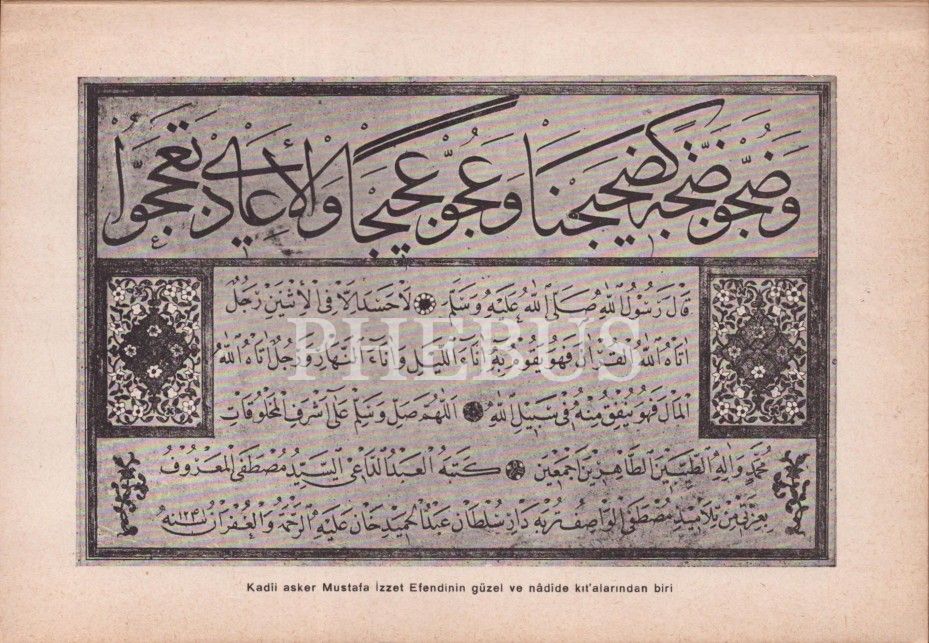 وَضَجُّوا ضَجَّةً كَضَجِيجِنَا وَعَجُّوا عَجِيجًا وَالْأَعَادِي تَعَجَّبُوا
قَالَ رَسُولُ اللّٰهِ صَلَّى اللّٰهُ عَلَيْهِ وَسَلَّمَ لَا حَسَدَ اِلَّا فِي الْاِثْنَيْنِ رَجُلٌ
اٰتَاهُ اللّٰهُ الْقُرْاٰنَ فَهُوَ يَقُومُ بِهِ اٰنَاءَ اللَّيْلِ وَاٰنَاءَ النَّهَارِ وَرَجُلٌ اٰتَاهُ اللّٰهُ
الْمَالَ فَهُوَ يُنْفِقُ مِنْهُ فِي سَبِيلِ اللّٰهِ اَللّٰهُمَّ صَلِّ وَسَلِّمْ عَلٰى اَشْرَفِ الْمَخْلُوقَاتِ
مُحَمَّدٍ وَاٰلِهِ الطَّيِّبِينَ الطَّاهِرِينَ اَجْمَعِينَ كَتَبَهُ الْعَبْدُ الدَّاعِي السَّيِّدُ مُصْطَفَى الْمَعْرُوفُ
بِعِزَّتٍ مِنْ تَلَامِيذِ مُصْطَفَى الْوَاصِف تربه دار سُلْطَان عَبْدُ الْحَمِيد خَان عَلَيْهِ الرَّحْمَةُ وَالْغُفْرَانُ سنه
PHEBUS
Kadii asker Mustafa İzzet Efendinin güzel ve nâdide kıt'alarından biri